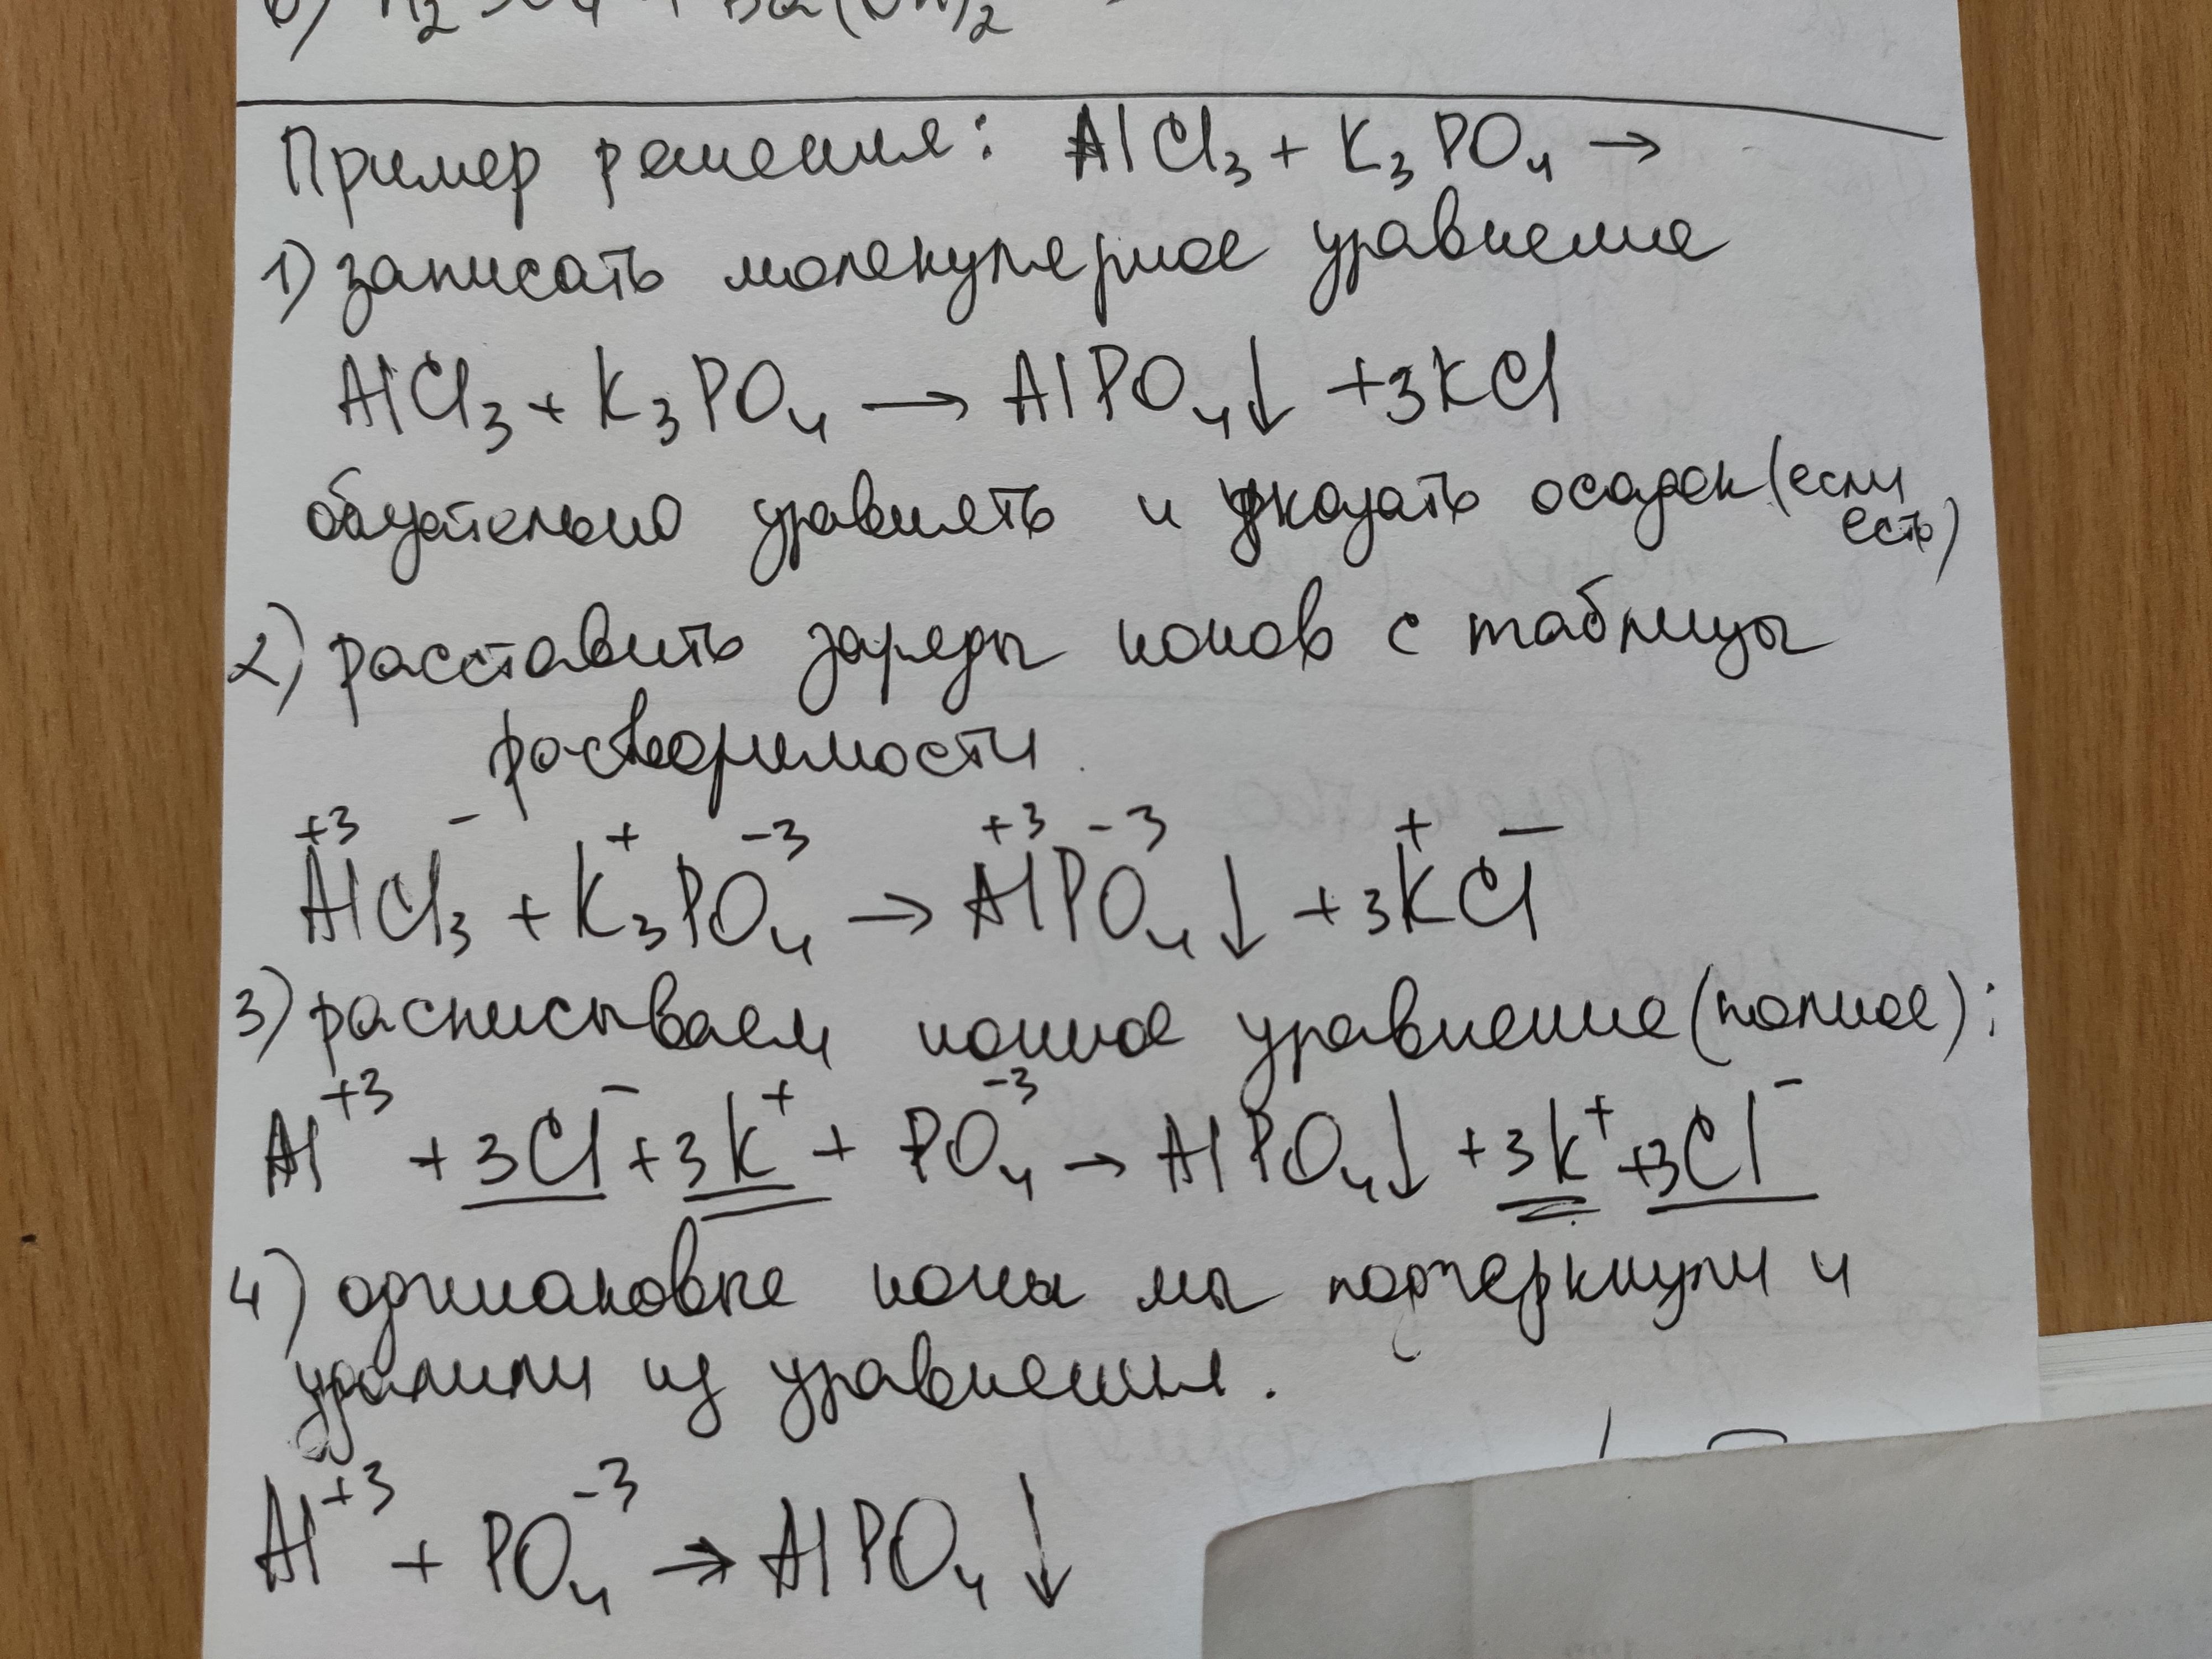 б) H₂SO₄ + Ba(OH)₂
Пример решения: AlCl₃ + K₃PO₄ →
1) записать молекулярное уравнение
AlCl₃ + K₃PO₄ → AlPO₄↓ + 3KCl
обязательно уравнять и указать осадок (если
есть)
2) расставить заряды ионов с таблицы
растворимости.
Al⁺³Cl₃⁻ + K₃⁺PO₄⁻³ → Al⁺³PO₄⁻³↓ + 3K⁺Cl⁻
3) расписываем ионное уравнение (полное):
Al⁺³ + 3Cl⁻ + 3K⁺ + PO₄⁻³ → AlPO₄↓ + 3K⁺ + 3Cl⁻
4) одинаковые ионы мы подчеркнули и
удалили из уравнения.
Al⁺³ + PO₄⁻³ → AlPO₄↓